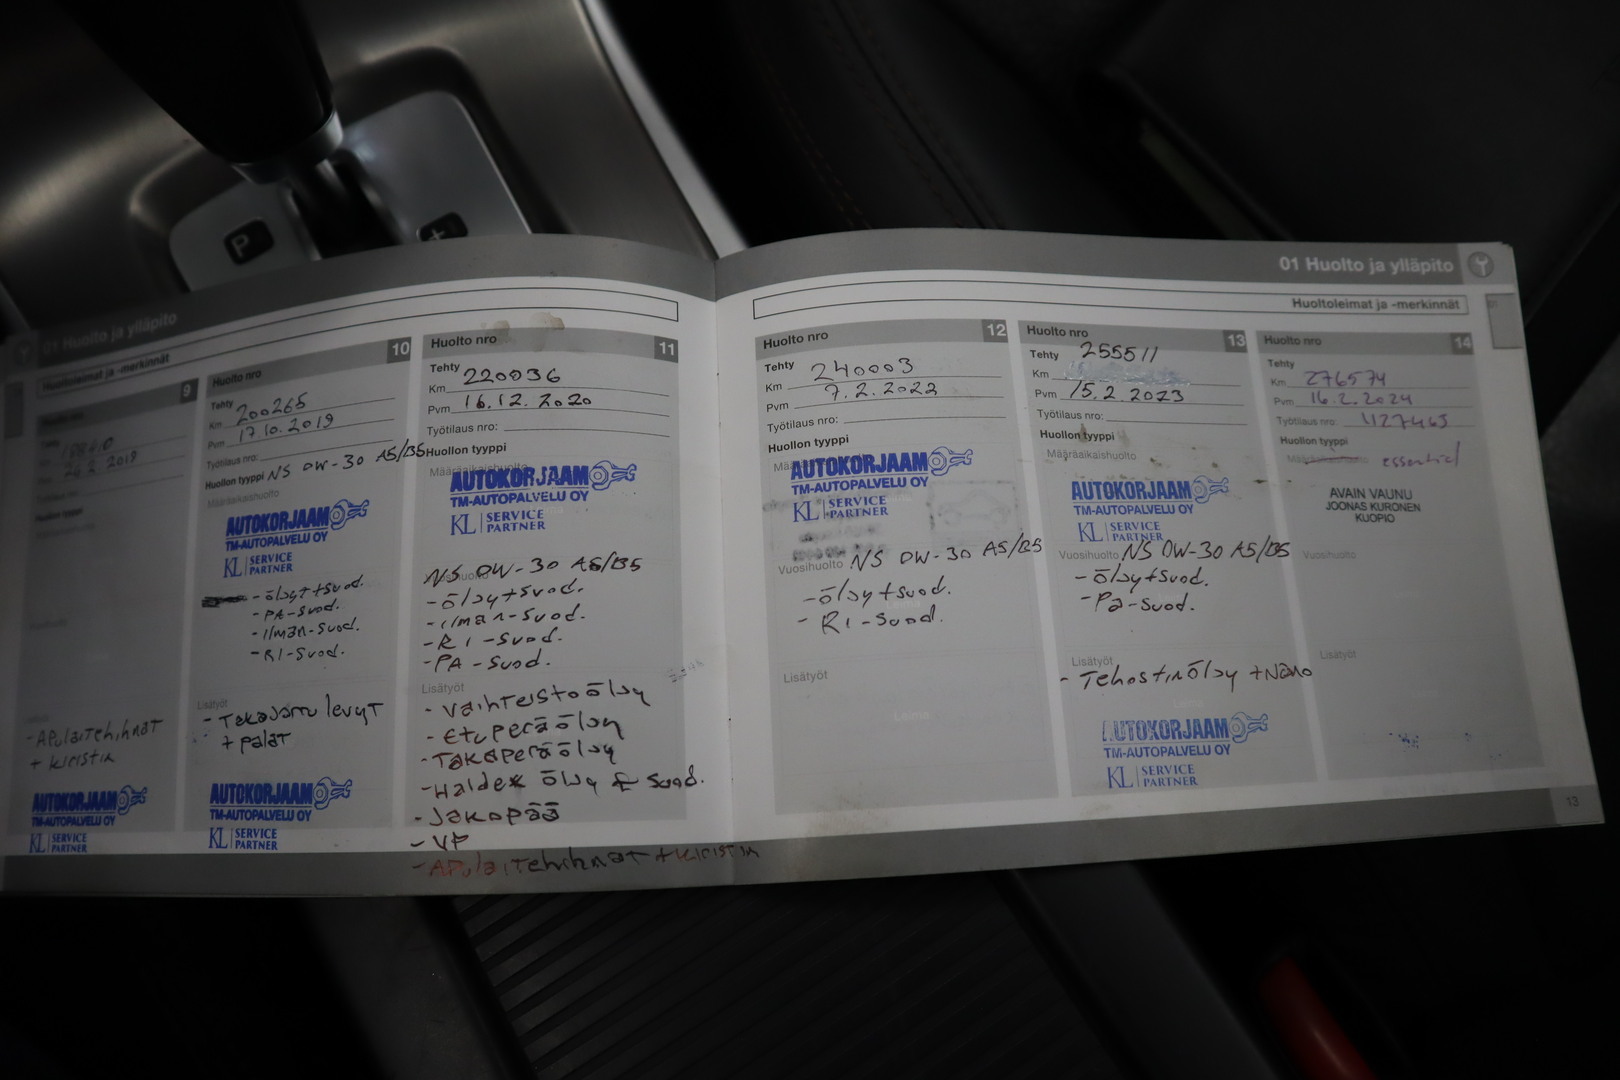 P
+
01 Huolto ja ylläpito
Huoltoleimat ja -merkinnät
9
2019
- Apulaitehihnat
+ kiristin
AUTOKORJAAM
TM-AUTOPALVELU OY
KL SERVICE PARTNER
Huolto nro 10
Tehty
Km 200265
Pvm 17.10.2019
Työtilaus nro:
Huollon tyyppi NS 0W-30 A5/B5
Määräaikaishuolto
AUTOKORJAAM
TM-AUTOPALVELU OY
KL SERVICE PARTNER
- öljyt+suod.
- PA-suod.
- ilman-suod.
- RI-suod.
Lisätyöt
- Takajarru levyt
+ palat
AUTOKORJAAM
TM-AUTOPALVELU OY
KL SERVICE PARTNER
Huolto nro 11
Tehty
Km 220036
Pvm 16.12.2020
Työtilaus nro:
Huollon tyyppi
Määräaikaishuolto
AUTOKORJAAM
TM-AUTOPALVELU OY
KL SERVICE PARTNER
NS 0W-30 A5/B5
- öljy+suod.
- ilman-suod.
- RI-suod.
- PA-suod.
Lisätyöt
- Vaihteistoöljy
- Etuperäöljy
- Takaperäöljy
- Haldex öljy & suod.
- Jakopää
- VP
- Apulaitehihnat + kiristin
01 Huolto ja ylläpito
Huoltoleimat ja -merkinnät
Huolto nro 12
Tehty
Km 240003
Pvm 7.2.2022
Työtilaus nro:
Huollon tyyppi
AUTOKORJAAM
TM-AUTOPALVELU OY
KL SERVICE PARTNER
Vuosihuolto NS 0W-30 A5/B5
- öljy+suod.
- RI-suod.
Lisätyöt
Leima
Huolto nro 13
Tehty 255511
Km
Pvm 15.2.2023
Työtilaus nro:
Huollon tyyppi
Määräaikaishuolto
AUTOKORJAAM
TM-AUTOPALVELU OY
KL SERVICE PARTNER
Vuosihuolto NS 0W-30 A5/B5
- öljy+suod.
- Pa-suod.
Lisätyöt
- Tehostinöljy + Nano
AUTOKORJAAM
TM-AUTOPALVELU OY
KL SERVICE PARTNER
Huolto nro 14
Tehty
Km 276574
Pvm 16.2.2024
Työtilaus nro: 1127463
Huollon tyyppi
essential
AVAIN VAUNU
JOONAS KURONEN
KUOPIO
Vuosihuolto
Lisätyöt
13